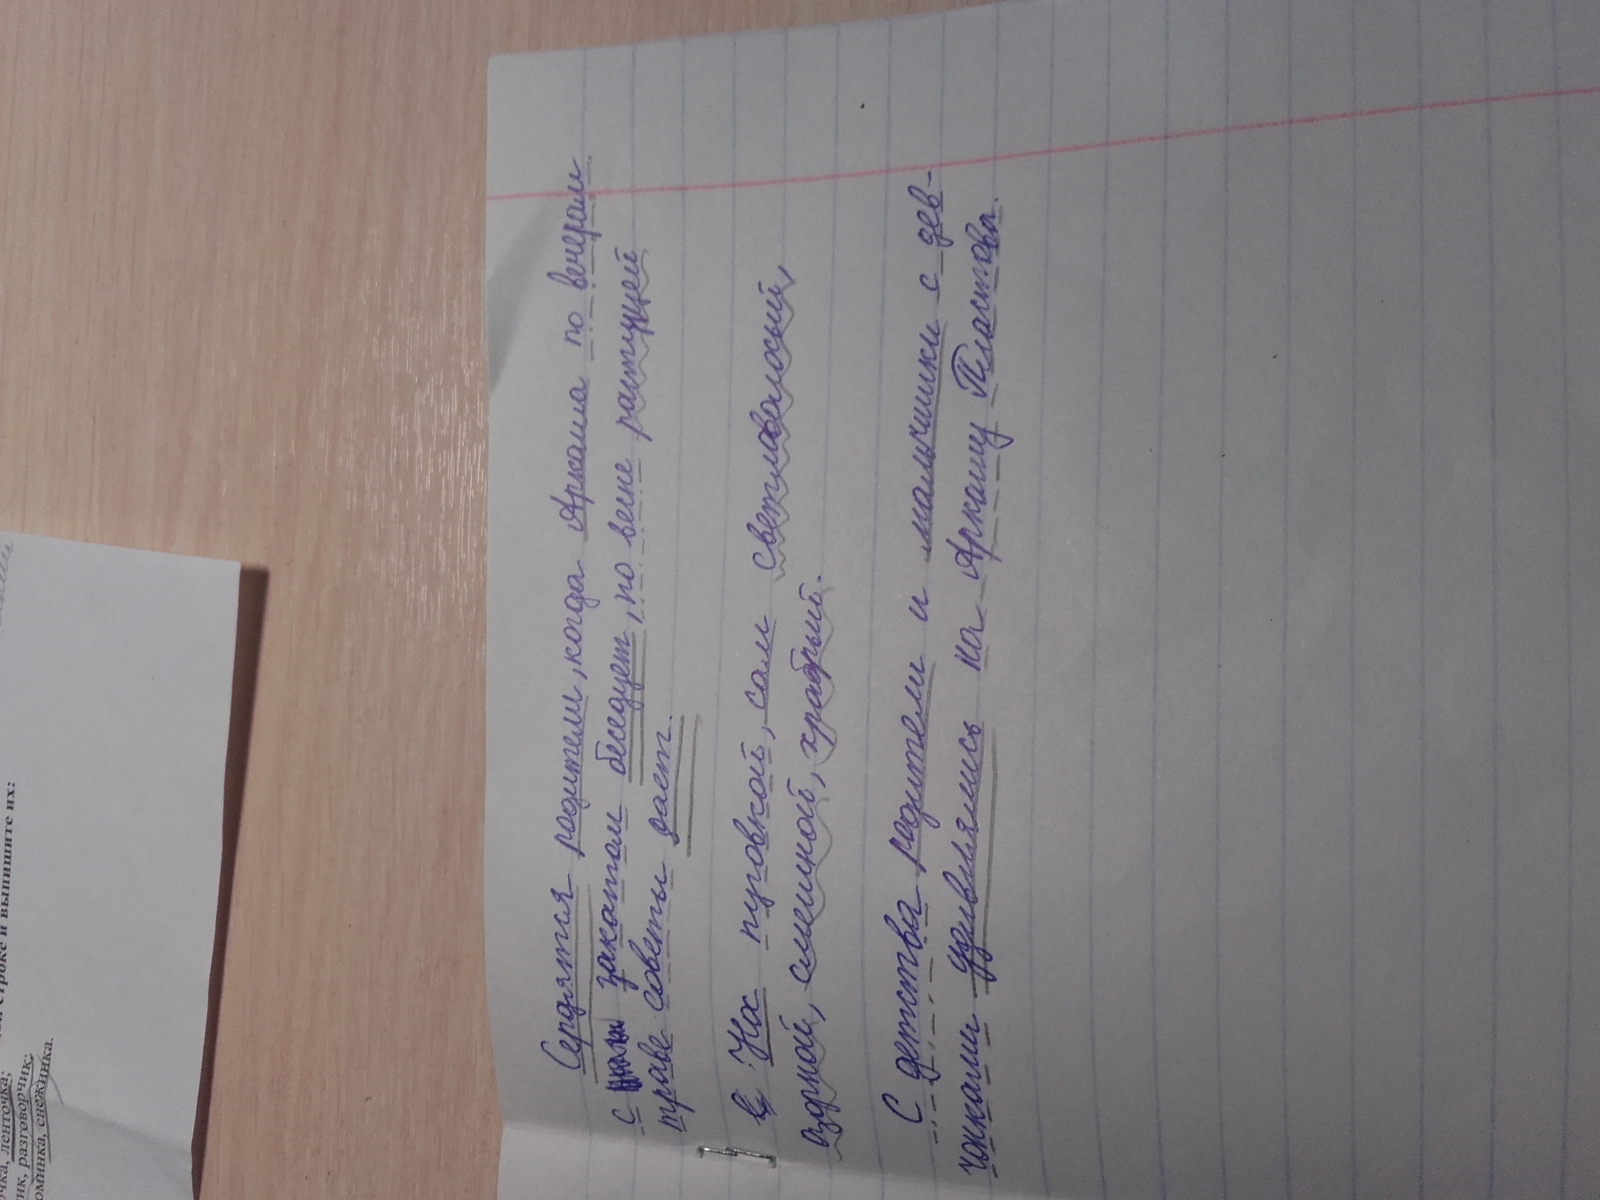 й строке и выпишите их:
чка, ленточка;
ик, разговорчик;
оминка, снежинка.
Сердятся родители, когда Аркаша по вечерам
с закатом беседует, по весне растущей
траве советы дает.
Нос пуговкой, сам светловолосый,
озорной, смешной, храбрый.
С детства родители и мальчишки с дев-
чонками удивлялись на Аркашу Пластова.